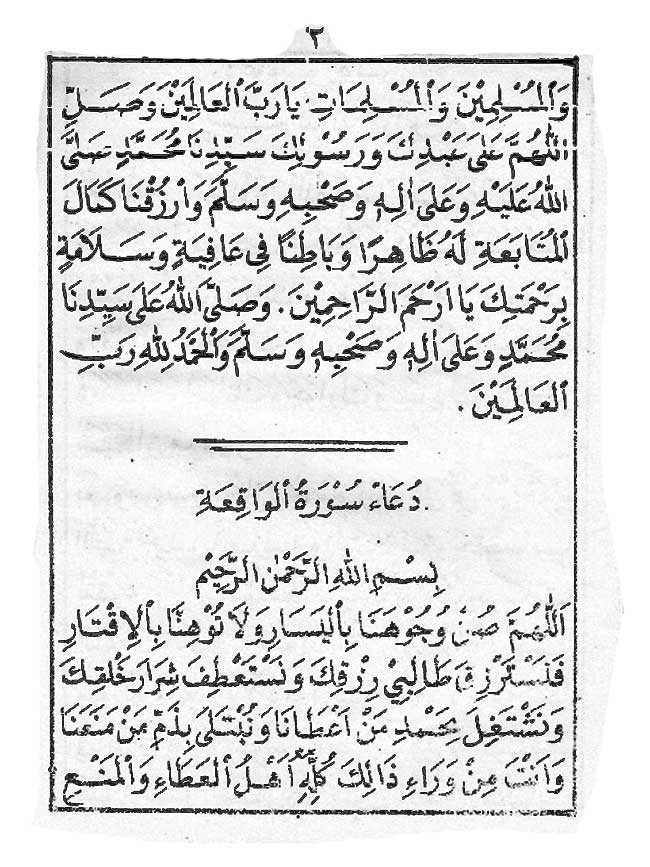 ٢
وَالْمُسْلِمِيْنَ وَالْمُسْلِمَاتِ يَارَبَّ الْعَالَمِيْنَ وَصَلِّ
اللّٰهُمَّ عَلَى عَبْدِكَ وَرَسُوْلِكَ سَيِّدِنَا مُحَمَّدٍ صَلَّى
اللهُ عَلَيْهِ وَعَلَى اٰلِهِ وَصَحْبِهِ وَسَلَّمَ وَارْزُقْنَا كَمَالَ
الْمُتَابَعَةِ لَهُ ظَاهِرًا وَبَاطِنًا فِى عَافِيَةٍ وَسَلَامَةٍ
بِرَحْمَتِكَ يَا اَرْحَمَ الرَّاحِمِيْنَ. وَصَلَّى اللهُ عَلَى سَيِّدِنَا
مُحَمَّدٍ وَعَلَى اٰلِهِ وَصَحْبِهِ وَسَلَّمَ وَالْحَمْدُ لِلّٰهِ رَبِّ
الْعَالَمِيْنَ.
دُعَاءْ سُوْرَةُ الْوَاقِعَةِ.
بِسْمِ اللهِ الرَّحْمٰنِ الرَّحِيْمِ
اَللّٰهُمَّ صُنْ وُجُوْهَنَا بِالْيَسَارِ وَلَا تُوْهِنَّا بِالْاِقْتَارِ
فَنَسْتَرْزِقَ طَالِبِيْ رِزْقِكَ وَنَسْتَعْطِفَ شِرَارَ خَلْقِكَ
وَنَشْتَغِلَ بِحَمْدِ مَنْ اَعْطَانَا وَنُبْتَلَى بِذَمِّ مَنْ مَنَعَنَا
وَاَنْتَ مِنْ وَرَاءِ ذَالِكَ كُلِّهِ اَهْلُ الْعَطَاءِ وَالْمَنْعِ